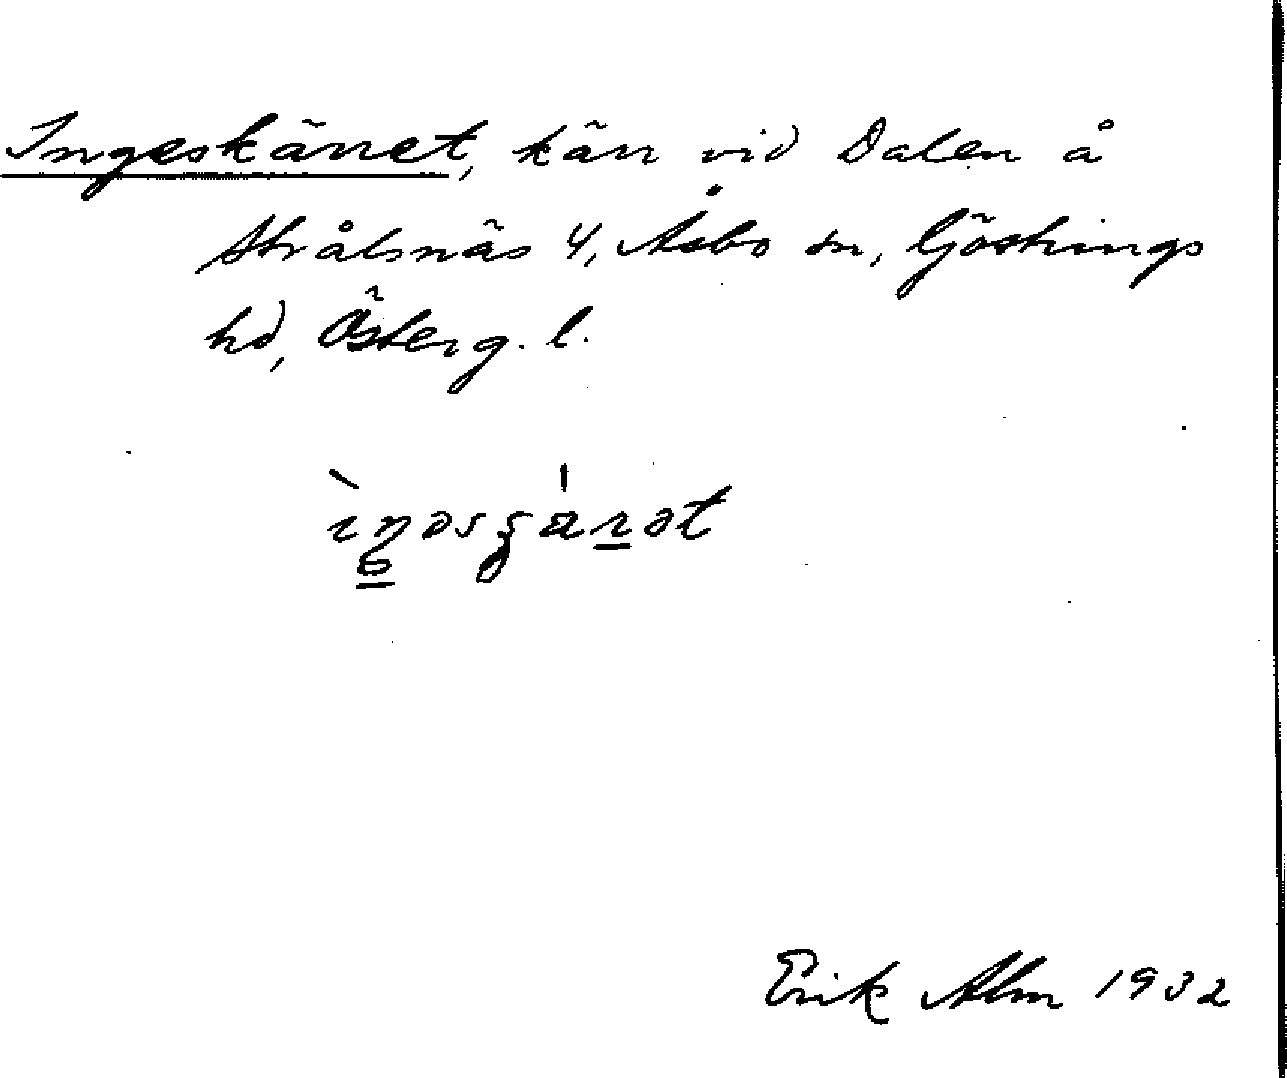 Ingeskärret, kärr vid Dalen å
Strålsnäs 4, Åsbo sn, Göstrings
hd, Österg. l.
Erik Alm 1932